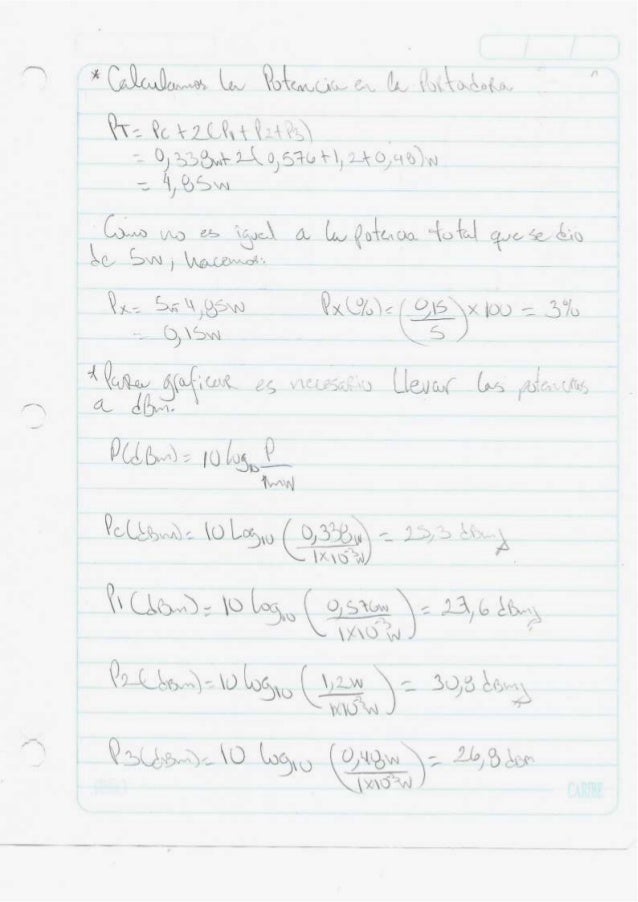 * Calculamos la Potencia en la Portadora
PT = Pc + 2(P1 + P2 + P3)
= 0,338w + 2(0,576 + 1,2 + 0,48)w
= 4,85w
Como no es igual a la potencia total que se dio
de 5w, hacemos:
Px = 5w - 4,85w Px(%) = (0,15/5) x 100 = 3%
= 0,15w
* Para graficar es necesario llevar las potencias
a dBm.
P(dBm) = 10 log10 P/1mW
Pc(dBm) = 10 Log10 (0,338w/1x10^-3w) = 25,3 dBm
P1(dBm) = 10 log10 (0,576w/1x10^-3w) = 27,6 dBm
P2(dBm) = 10 log10 (1,2w/1x10^-3w) = 30,8 dBm
P3(dBm) = 10 log10 (0,48w/1x10^-3w) = 26,8 dBm
CARIBE